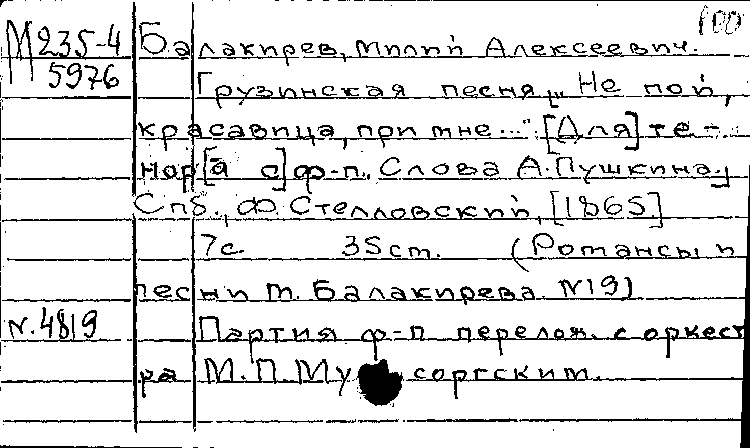 100
М 235-4 Балакирев, Милий Алексеевич.
5976 Грузинская песня „Не пой,
красавица, при мне..." [Для] те-
нор[а с] ф-п. Слова А. Пушкина.
Спб., Ф. Стелловский, [1865.]
7с. 35 cm. (Романсы и
песни М. Балакирева. N19)
N.4819 Партия ф-п перелож. с оркест
ра М.П.Му соргским.